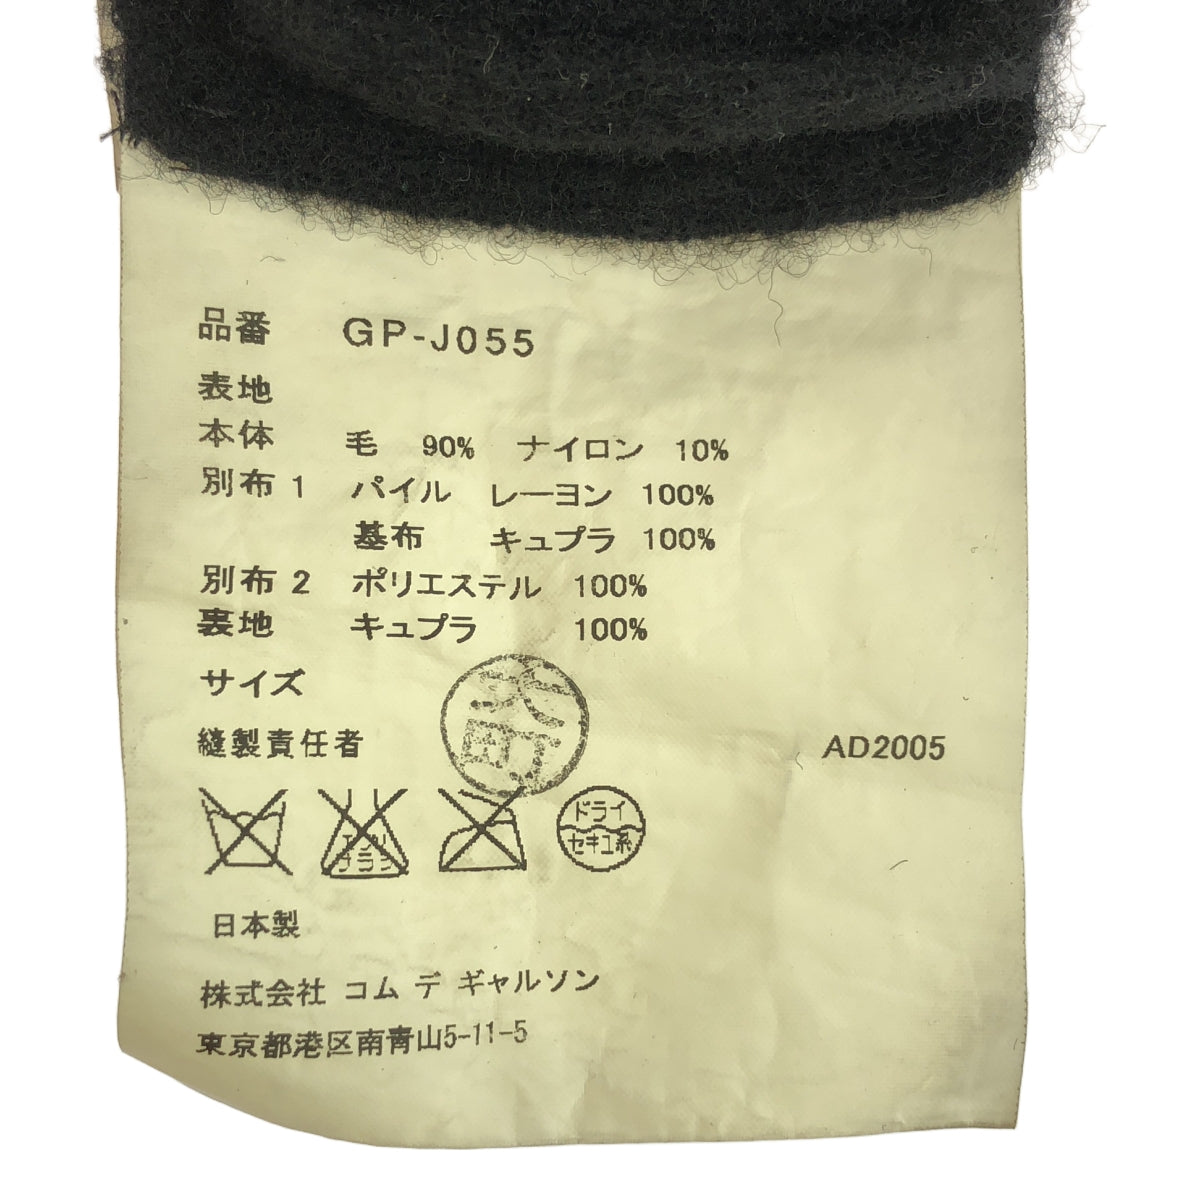 品番 GP-J055
表地
本体 毛 90% ナイロン 10%
別布 1 パイル レーヨン 100%
基布 キュプラ 100%
別布 2 ポリエステル 100%
裏地 キュプラ 100%
サイズ
縫製責任者
AD2005
エンソ
サラシ
ドライ
セキユ系
日本製
株式会社 コム デ ギャルソン
東京都港区南青山5-11-5